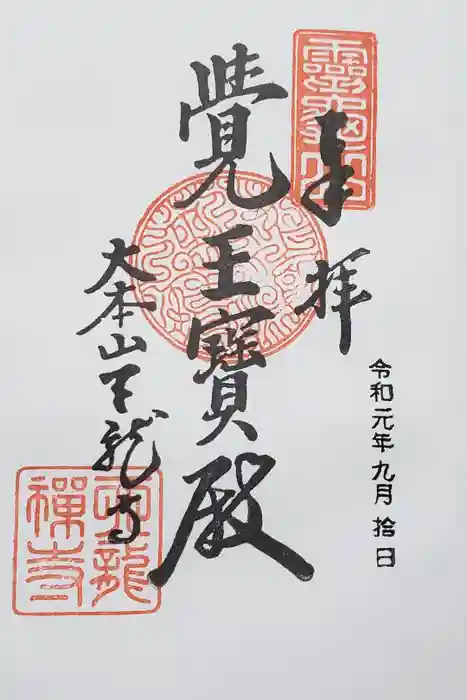 奉拝
令和元年九月拾日
覺王寶殿
大本山天龍寺
靈龜山
天龍
禪寺